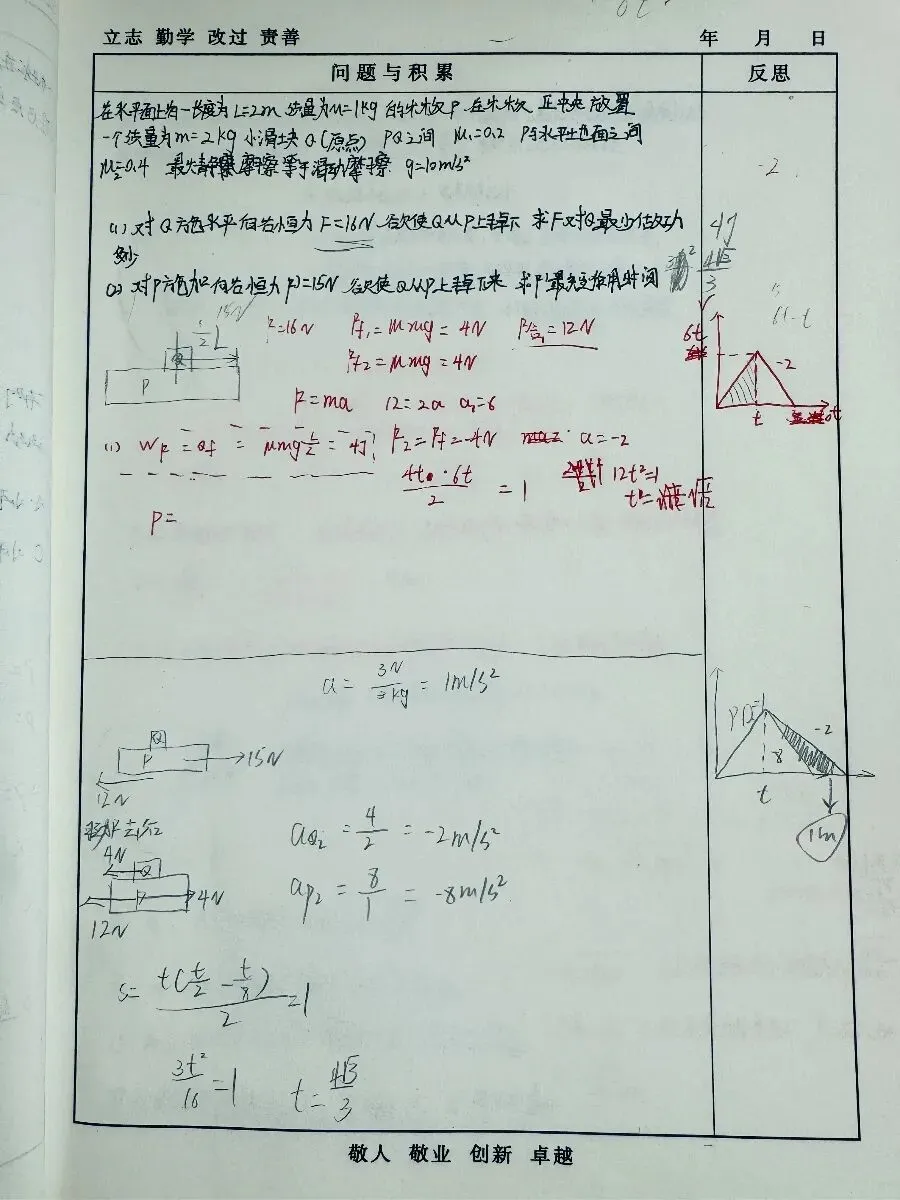 立志 勤学 改过 责善
年 月 日
问题与积累
反思
在水平面上有一长度为L=2m 质量为M=1kg 的木板P 在木板 正中央 放置
一个质量为m=2kg 小滑块Q(原点) PQ之间 μ₁=0.2 P与水平地面之间
μ₂=0.4 最大静摩擦等于滑动摩擦 g=10m/s²
-2
(1) 对Q 施水平向右恒力 F=16N 欲使Q从P上掉下 求F对Q最少做功
多少
4J
(2) 对P施加向右恒力F=15N 欲使Q从P上掉下来 求F最短作用时间
4√3/3
15N
1/2 L
Q
P
F=16N Ff₁=μmg=4N F合₁=12N
Ff₂=μmg=4N
F=ma 12=2a a₁=6
6t-t
6t
-2
t
6t
(1) WF=Qf=μmg L/2=4J F₂=Ff=-4N a=-2
4t·6t/2=1 12t²=1
P=
a=3N/3kg=1m/s²
Q
P
15N
12N
aQ₂=4/2=-2m/s²
4N
Q
P
4N
12N
aP₂=8/1=-8m/s²
-2
-8
t
1m
S=t(t/2-t/8)/2=1
3t²/16=1 t=4√3/3
敬人 敬业 创新 卓越